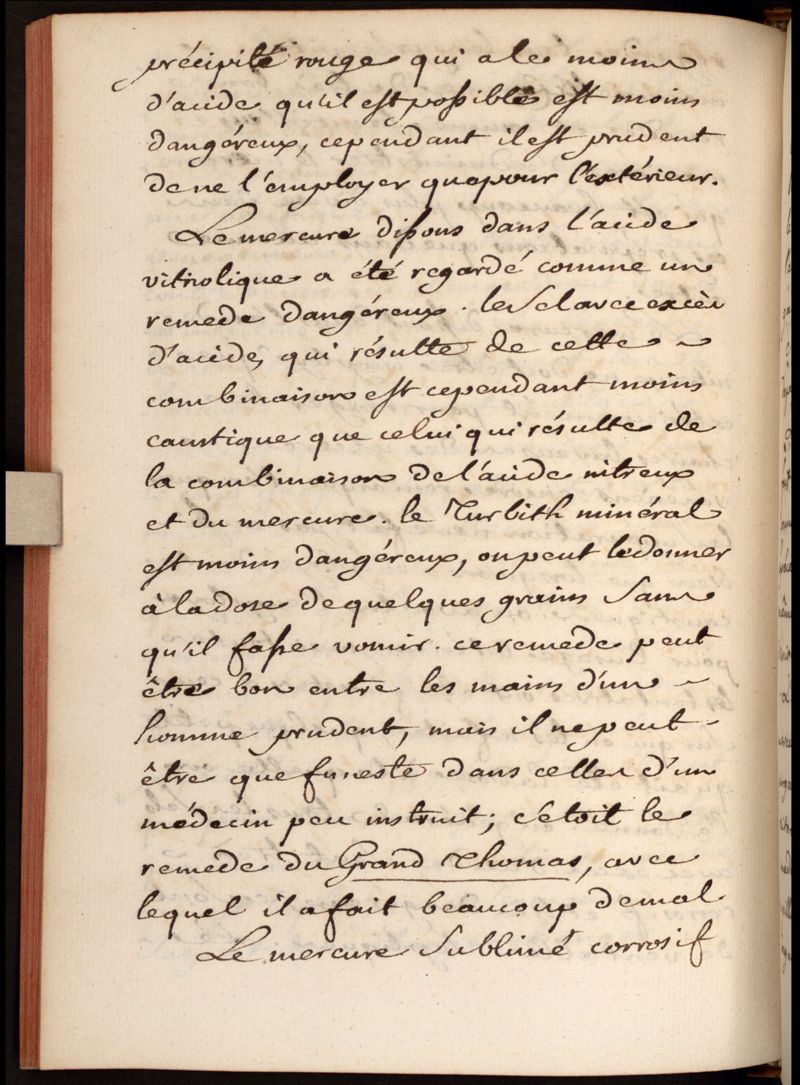 précipité rouge qui a le moins
d'acide qu'il est possible est moins
dangéreux, cependant il est prudent
de ne l'employer que pour l'extérieur.
Le mercure dissous dans l'acide
vitriolique a été regardé comme un
remede dangéreux. le Sel avec excès
d'acide, qui résulte de cette ~
combinaison est cependant moins
caustique que celui qui résulte de
la combinaison de l'acide nitreux
et du mercure. le Turbith minéral
est moins dangéreux, on peut le donner
à la dose de quelques grains Sans
qu'il fasse vomir. ce remede peut
être bon entre les mains d'un ~
homme prudent, mais il ne peut -
être que funeste dans celles d'un
médecin peu instruit; c'etoit le
remede du Grand Thomas, avec
lequel il a fait beaucoup de mal
Le mercure Sublimé corrosif